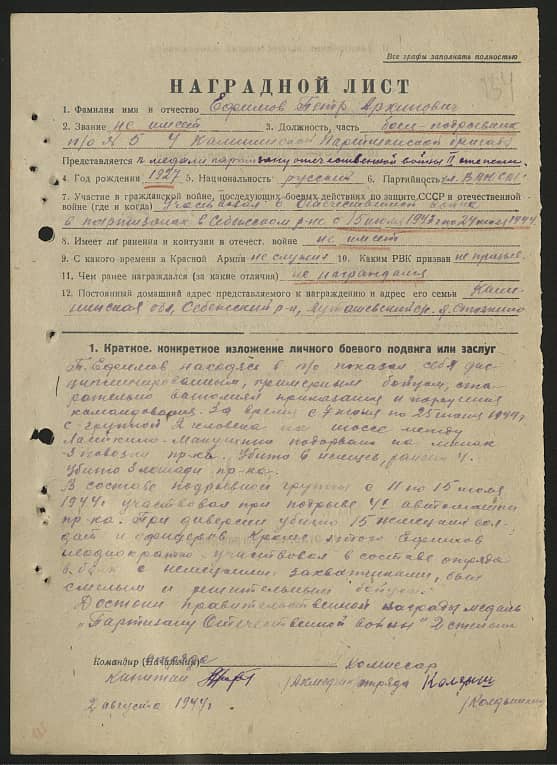 Все графы заполнять полностью
НАГРАДНОЙ ЛИСТ
1. Фамилия имя и отчество Ефимов Петр Архипович
2. Звание не имеет 3. Должность, часть боец-подрывник
п/о № 5 4 Калининской Партизанской бригады
Представляется к медали партизану отечественной войны II степени.
4. Год рождения 1927 5. Национальность русский 6. Партийность чл. ВЛКСМ
7. Участие в гражданской войне, последующих боевых действиях по защите СССР и отечественной
войне (где и когда) Участвовал в Отечественной войне
в партизанах в Себежском р-не с 15 июля 1942 по 24 июля 1944
8. Имеет ли ранения и контузии в отечест. войне не имеет
9. С какого времени в Красной Армии не служил 10. Каким РВК призван не призыв.
11. Чем ранее награждался (за какие отличия) не награждался
12. Постоянный домашний адрес представляемого к награждению и адрес его семьи Кали-
нинская обл, Себежский р-н,
1. Краткое, конкретное изложение личного боевого подвига или заслуг
Т. Ефимов находясь в п/о показал себя дис-
циплинированным, примерным бойцом, ста-
рательно выполнял приказания и поручения
командования. За время с 7 июня по 25 июня 1944 г
с группой 2 человека на шоссе между
подорвано на минах
3 повозки пр-ка. Убито 6 немцев, ранено 4.
Убито 3 лошади пр-ка.
В составе подрывной группы с 11 по 15 июля
1944 г участвовал при подрыве 4х автомашин
пр-ка. При диверсии убито 15 немецких сол-
дат и офицеров. Кроме этого Ефимов
неоднократно участвовал в составе отряда
в боях с немецкими захватчиками, был
смелым и решительным бойцом.
Достоин правительственной награды медаль
„Партизану Отечественной войны" 2 степени
Командир (Начальник) отряда Комиссар
капитан отряда
2 августа 1944 г.